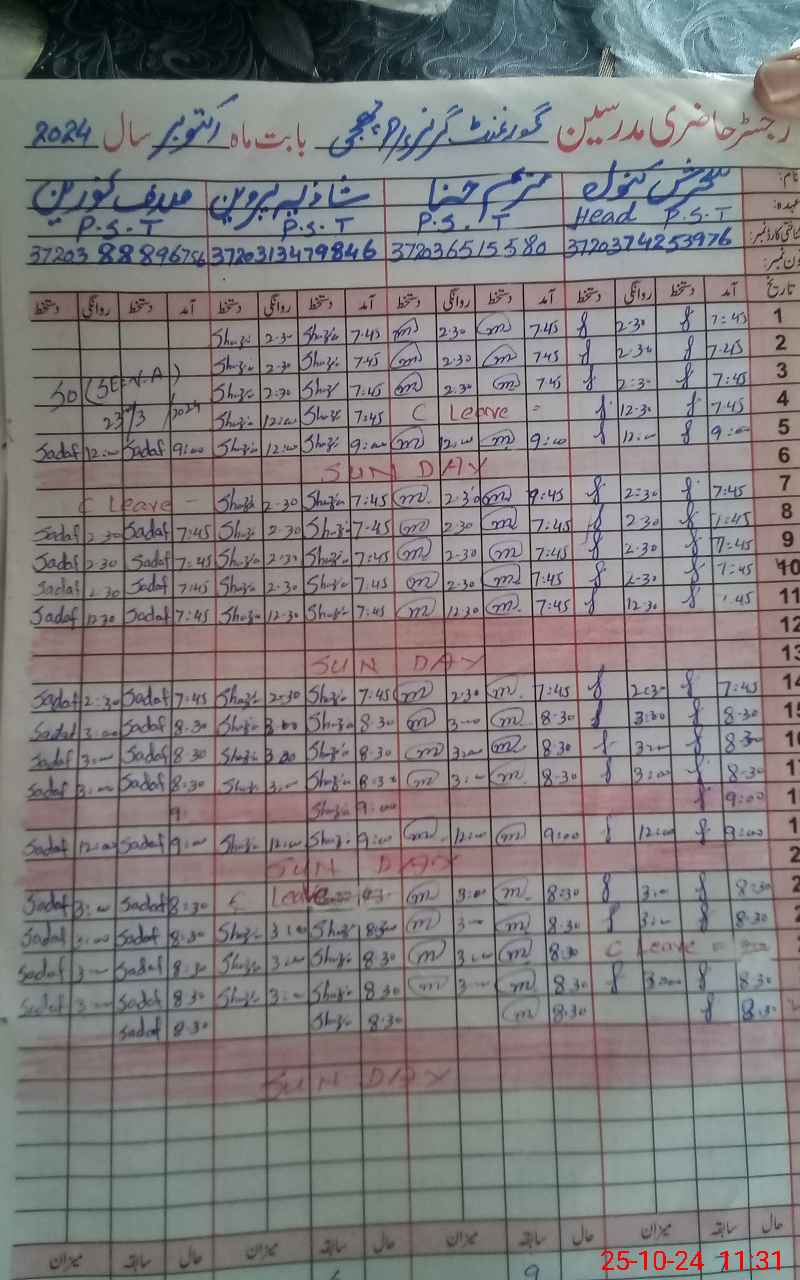 رجسٹر حاضری مدرسین گورنمنٹ گرلز بابت ماہ اکتوبر سال 2024
نام: سحرش کنول مریم حنا شازیہ پروین صدف نورین
عہدہ: Head P.S.T P.S.T P.S.T P.S.T
37203 88896756 3720313479846 3720365155 80 3720374253976
تاریخ آمد دستخط روانگی دستخط آمد دستخط روانگی دستخط آمد دستخط روانگی دستخط آمد دستخط روانگی دستخط
Shazia 2.30 Shazia 7.45 m 2.30 m 7.45 2-30 7:45 1
Shazia 2.30 Shazia 7.45 m 2.30 m 7.45 2.30 7.45 2
Shazia 2:30 Shazia 7.45 m 2.30 m 7.45 2:30 7:45 3
23/3/2024 Shazia 12:00 Shazia 7:45 C Leave = 12.30 7.45 4
Sadaf 12:00 Sadaf 9:00 Shazia 12:00 Shazia 9:00 m 12:00 m 9:00 12:00 9:00 5
SUN DAY 6
C Leave - Shazia 2-30 Shazia 7:45 m 2:30 m 2:30 7:45 7
Sadaf 2.30 Sadaf 7:45 Shazia 2.30 Shazia 7.45 m 2.30 m 7:45 2.30 8
Sadaf 2.30 Sadaf 7:45 Shazia 2.30 Shazia 7:45 m 2-30 m 7:45 2.30 7:45 9
Sadaf 2.30 Sadaf 7.45 Shazia 2.30 Shazia 7.45 m 2.30 m 7:45 2-30 7:45 10
Sadaf 12.30 Sadaf 7:45 Shazia 12.30 Shazia 7.45 m 12.30 m 7:45 12.30 11
12
SUN DAY 13
Sadaf 2:30 Sadaf 7:45 Shazia 2-30 Shazia 7:45 m 2.30 m 7:45 2:30 7:45 14
Sadaf 3:00 Sadaf 8.30 Shazia 3:00 Shazia 8.30 m 3:00 m 8.30 3:00 8.30
Sadaf 3:00 Sadaf 8.30 Shazia 3.00 Shazia 8.30 m 3:00 m 8.30 3:00 8.30
Sadaf 3:00 Sadaf 8:30 Shazia 3:00 Shazia 8:30 m 3:00 m 8.30 3:00 8-30
9: Shazia 9:00 9:00
Sadaf 12:00 Sadaf 9:00 Shazia 12:00 Shazia 9:00 m 12:00 m 9:00 12:00 9:00
SUN DAY
Sadaf 3:00 Sadaf 8:30 C Leave m 3:00 m 8:30 3:00 8:30
Sadaf 3:00 Sadaf 8.30 Shazia 3:00 Shazia 8:30 m 3:00 m 8.30 3:00 8.30
Sadaf 3:00 Sadaf 8.30 Shazia 3:00 Shazia 8.30 m 3:00 m 8.30 C Leave =
Sadaf 3:00 Sadaf 8.30 Shazia 3:00 Shazia 8.30 m 3:00 m 8.30 3:00 8.30
Sadaf 8.30 Shazia 8.30 m 8.30 8.30
SUN DAY
حال سابقہ میزان حال سابقہ میزان حال سابقہ میزان حال سابقہ میزان
25-10-24 11:31